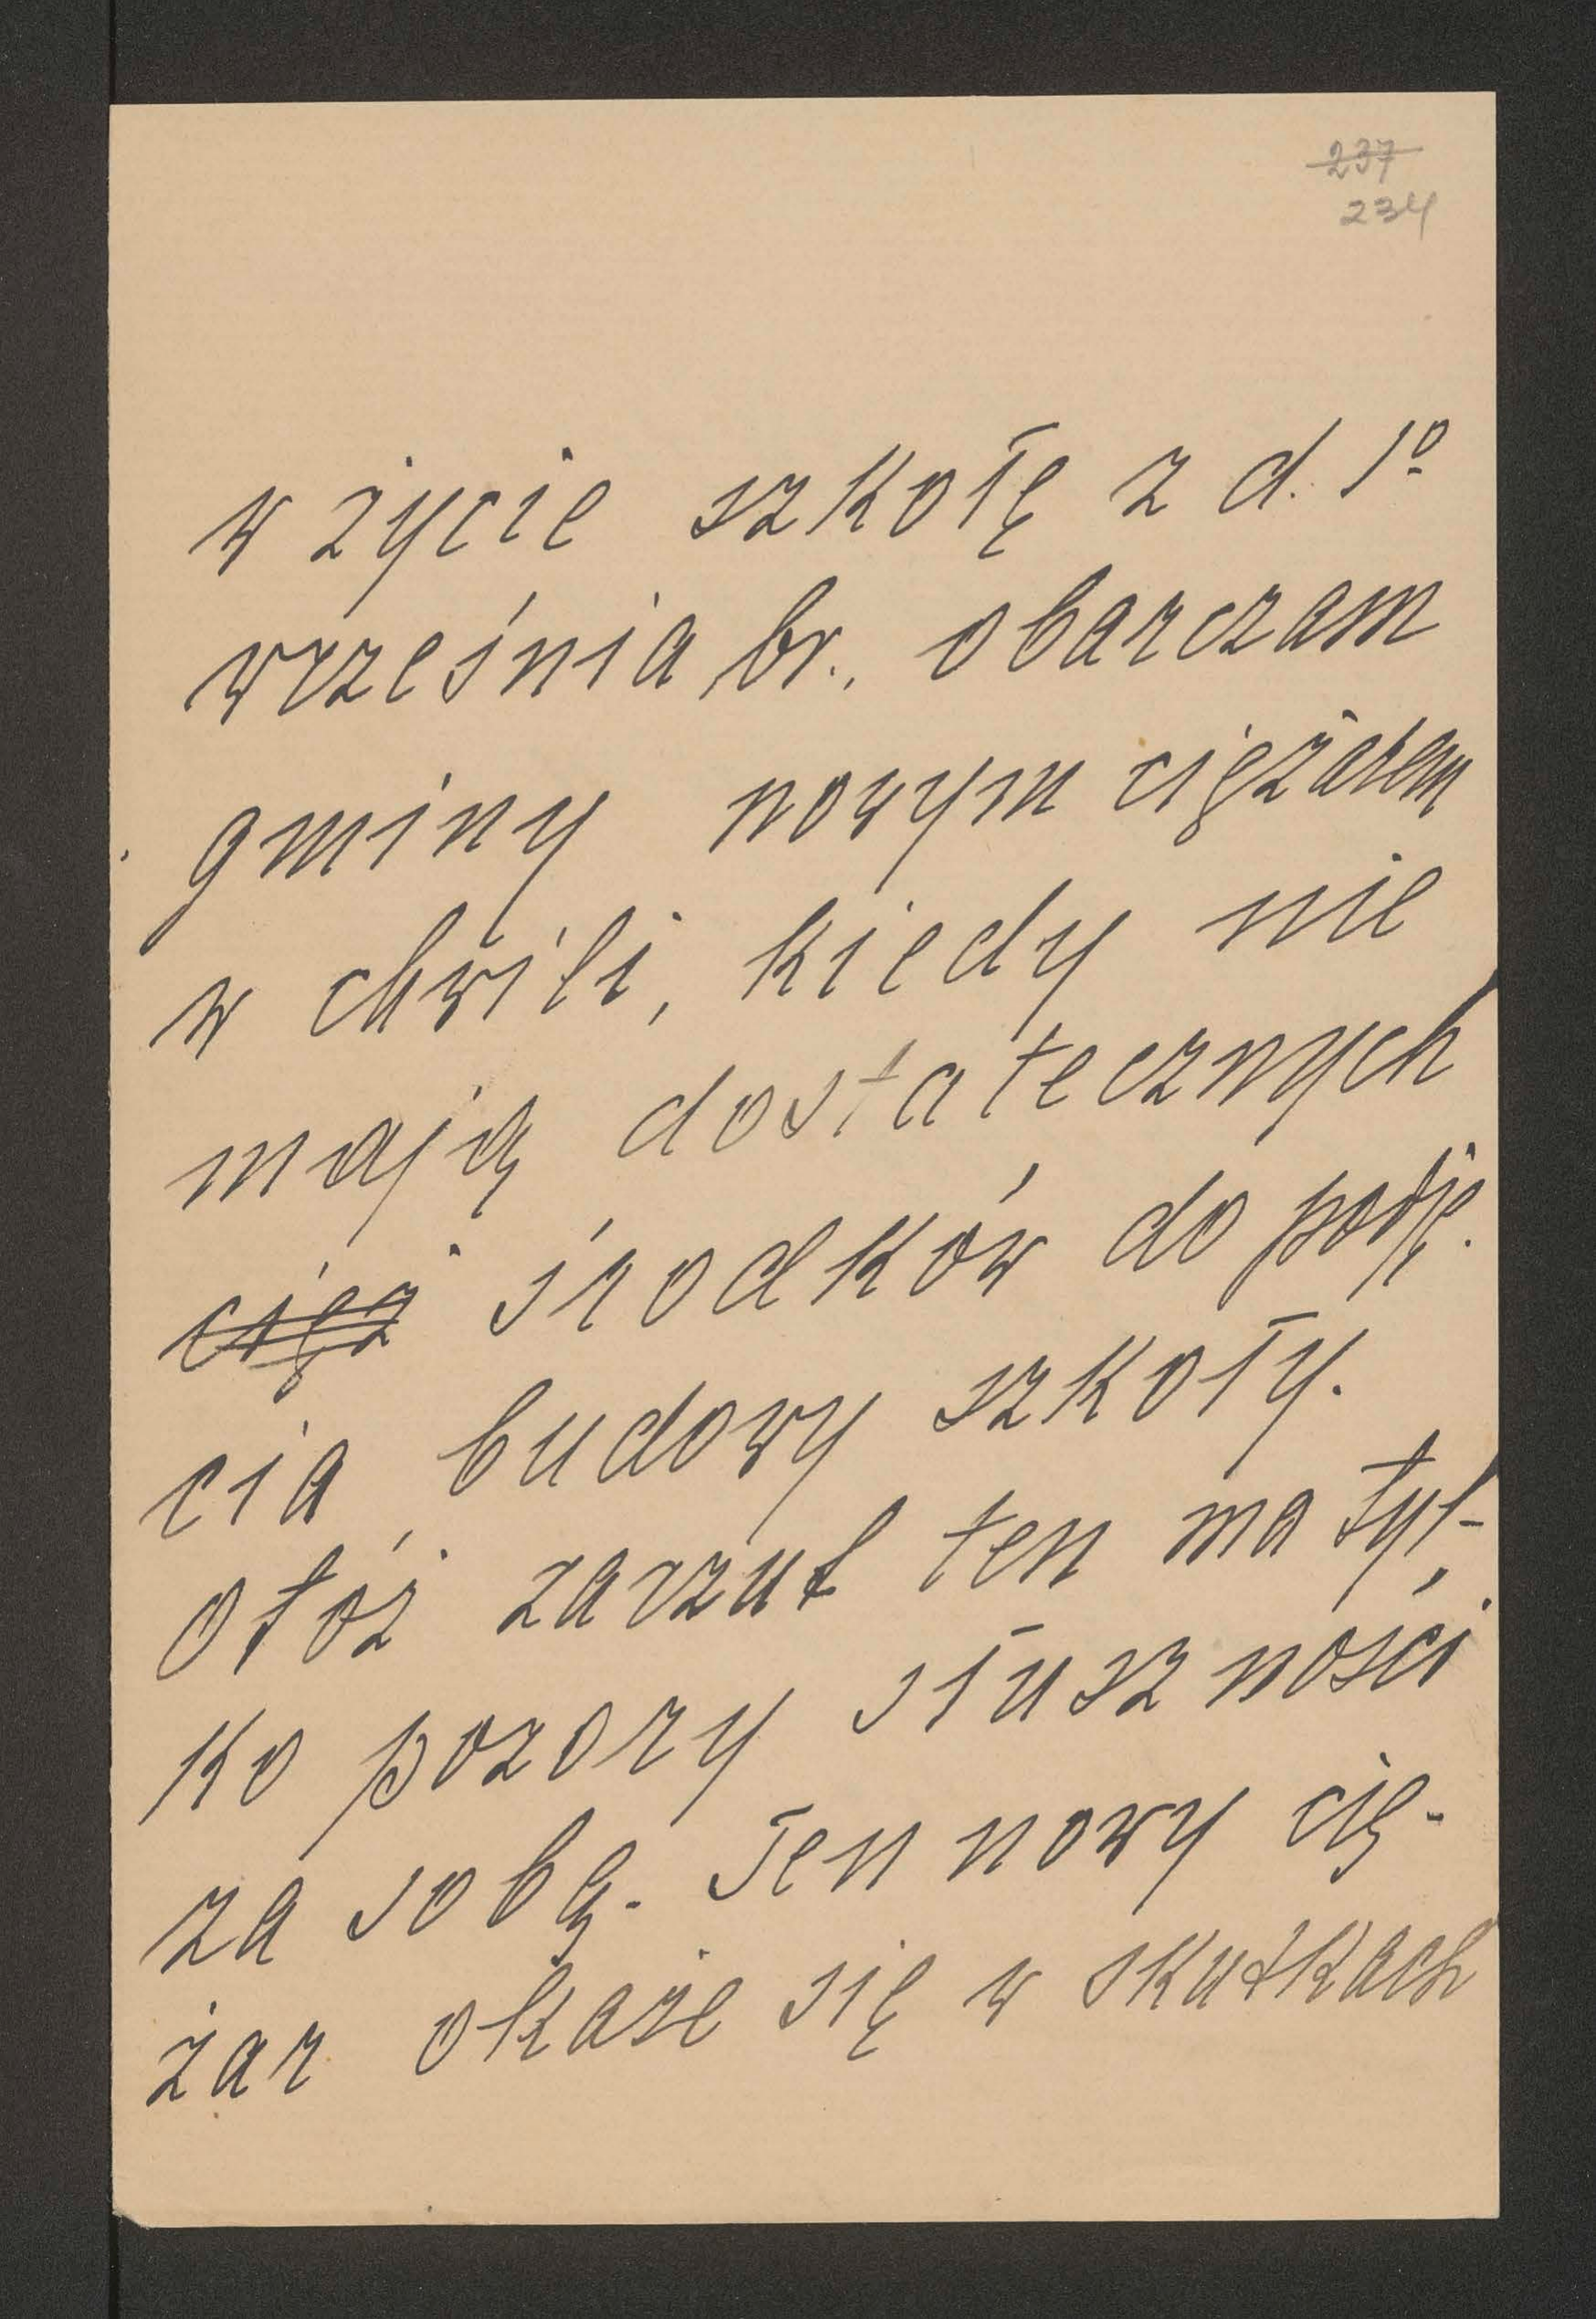 237
234
w życie szkołę z d. 1º
września br., obarczam
gminy nowym ciężarem
w chwili, kiedy nie
mają dostatecznych
cięż środków do podję-
cia budowy szkoły.
Otóż zarzut ten ma tyl-
ko pozory słuszności
za sobą. Ten nowy cię-
żar okaże się w skutkach